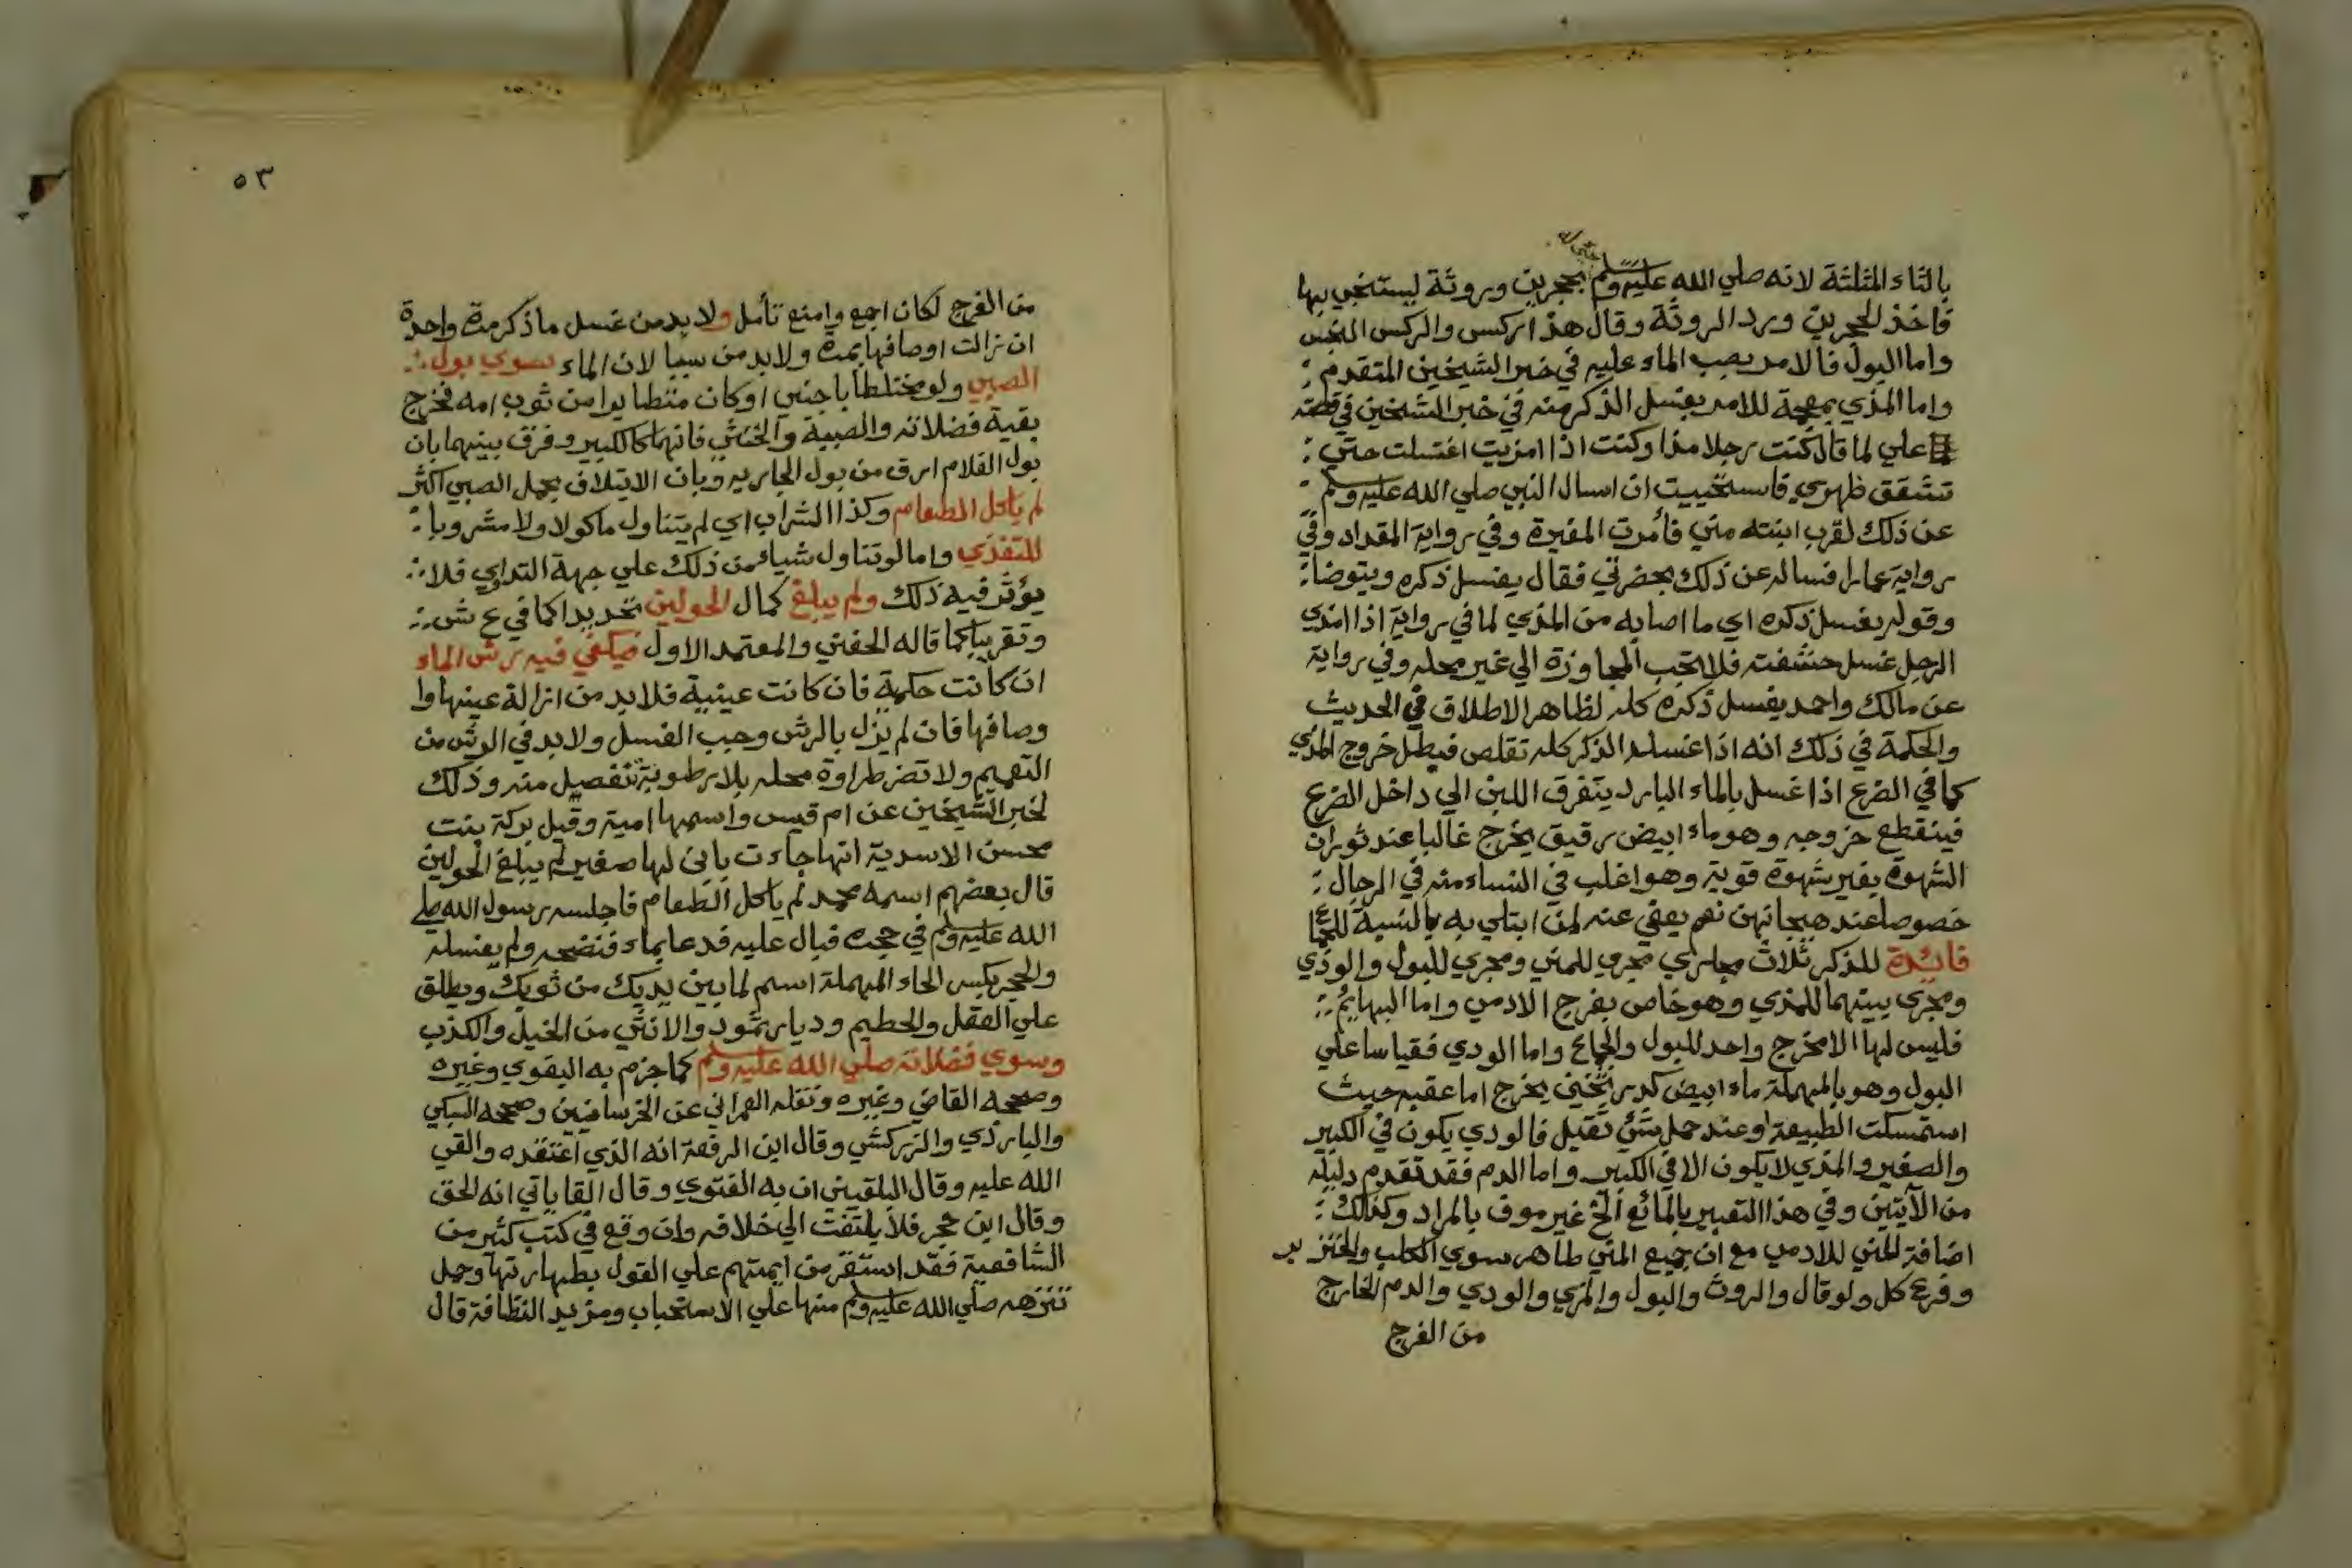 بالثاء المثلثة لانه صلي الله عليه وسلم بحجرين وروثة ليستنجي بها
فاخذ الحجرين ورد الروثة وقال هذا ركس والركس النجس
واما البول فالامر بصب الماء عليه في خبر الشيخين المتقدم
واما المذي بمعجمة للامر بغسل الذكر منه في خبر الشيخين في قصة
علي لما قال كنت رجلا مذا وكنت اذا امزيت اغتسلت حتي
تشقق ظهري فاستحييت ان اسال النبي صلي الله عليه وسلم
عن ذلك لقرب ابنته مني فأمرت المغيرة وفي رواية المقداد وفي
رواية عمارا فساله عن ذلك بحضرتي فقال يغسل ذكره ويتوضا
وقوله يغسل ذكره اي ما اصابه من المذي لما في رواية اذا امذي
الرجل غسل حشفته فلا تجب المجاوزة الي غير محله وفي رواية
عن مالك واحمد يغسل ذكره كله لظاهر الاطلاق في الحديث
والحكمة في ذلك انه اذا غسله الذكر كله تقلص فبطل خروج المذي
كما في الضرع اذا غسل بالماء البارد يتفرق اللبن الي داخل الضرع
فينقطع خروجه وهو ماء ابيض رقيق يخرج غالبا عند ثوران
الشهوة بغير شهوة قوية وهو اغلب في النساء منه في الرجال
خصوصا عند هيجانهن نعم يعفي عنه لمن ابتلي به بالنسبة للجماع
فائدة للذكر ثلاث مجاري مجري للمني ومجري للبول والودي
ومجري بينهما للمذي وهو خاص بفرج الادمي واما البهايم
فليس لها الا مخرج واحد للبول والجماع واما الودي فقياسا علي
البول وهو بالمهملة ماء ابيض كدر ثخين يخرج اما عقبه حيث
استمسكت الطبيعة او عند حمل شئ ثقيل فالودي يكون في الكبير
والصغير والمذي لا يكون الا في الكبير واما الدم فقد تقدم دليله
من الآيتين وفي هذا التعبير بالمائع الخ غير موف بالمراد وكذلك
اضافة المني للادمي مع ان جميع المني طاهر سوي الكلب والخنزير
وفرع كل ولو قال والروث والبول والمذي والودي والدم الخارج
من الفرج
٥٣
من الفرج لكان اجمع وامنع تأمل ولا بد من غسل ما ذكر مرة واحدة
ان زالت اوصافها بمرة ولا بد من سيبا لان الماء سوي بول
الصبي ولو مختلطا باجنبي او كان متطايرا من ثوب امه فخرج
بقية فضلاته والصبية والخنثي فانهما كالكبير وفرق بينهما بان
بول الغلام ارق من بول الجاريه وبان الايتلاف بحمل الصبي اكثر
لم ياكل الطعام وكذا الشراب اي لم يتناول ماكولا ولا مشروبا
للتغذي واما لو تناول شياء من ذلك علي جهة التداوي فلا
يؤثر فيه ذلك ولم يبلغ كمال الحولين تحديدا كما في ع ش
وتقريبا كما قاله الحفني والمعتمد الاول فيكفي فيه رش الماء
ان كانت حكمية فان كانت عينية فلا بد من ازالة عينها وا
وصافها فان لم يزل بالرش وجب الغسل ولا بد في الرش من
التعميم ولا تضر طراوة محله بلا رطوبة تنفصل منه وذلك
لخبر الشيخين عن ام قيس واسمها امية وقيل بركة بنت
محسن الاسدية انها جاءت بابن لها صغير لم يبلغ الحولين
قال بعضهم اسمه محمد لم ياكل الطعام فاجلسه رسول الله صلي
الله عليه وسلم في حجره فبال عليه فدعا بماء فنضحه ولم يغسله
والحجر بكسر الحاء المهملة اسم لما بين يديك من ثوبك ويطلق
علي العقل والحطيم وديار ثمود والانثي من الخيل والكذب
وسوي فضلاته صلي الله عليه وسلم كما جزم به البغوي وغيره
وصححه القاضي وغيره ونقله العمراني عن الخرسانيين وصححه السبكي
والبارزي والزركشي وقال ابن الرفعة انه الذي اعتقده والقي
الله عليه وقال البلقيني ان به الفتوي وقال القاياتي انه الحق
وقال ابن حجر فلا يلتفت الي خلافه وان وقع في كتب كثير من
الشافعية فقد استقر من ايمتهم علي القول بطهارتها وحمل
تنزهه صلي الله عليه وسلم منها علي الاستحباب ومزيد النظافة قال